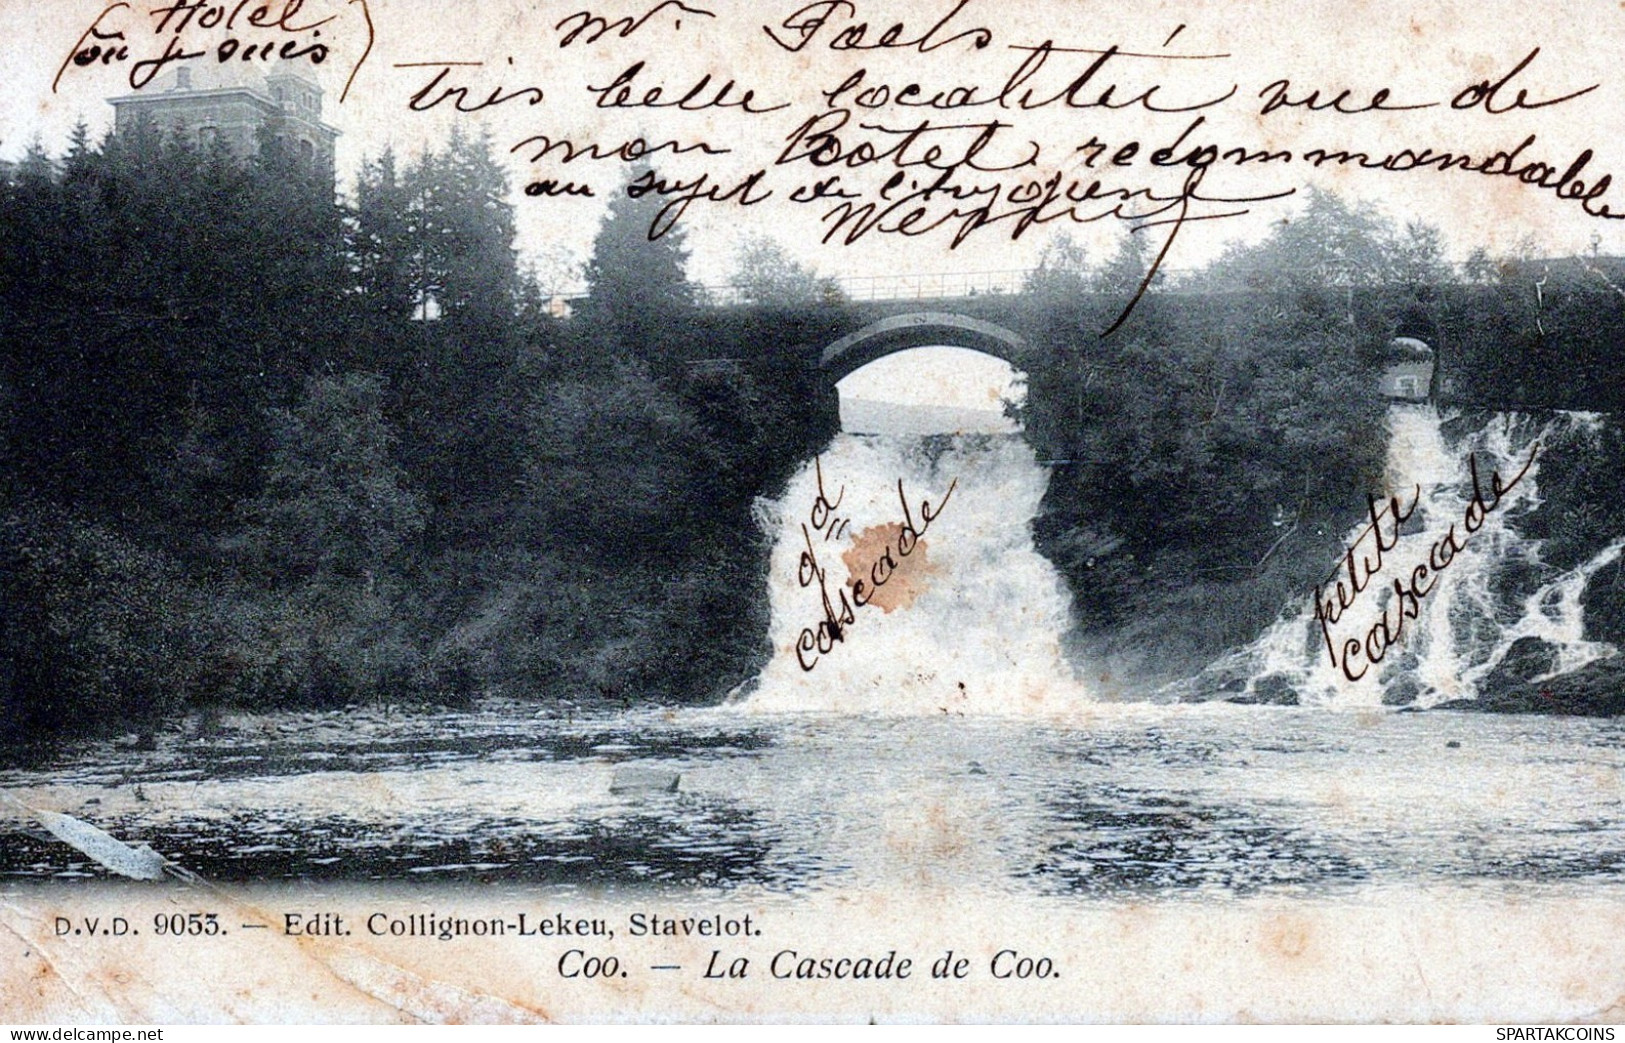 Hotel
(où je suis)
Mr Foels
Très belle localité vue de
mon Hôtel recommandable
au sujet de l'hygiène
gd
cascade
petite
cascade
D.V.D. 9053. — Edit. Collignon-Lekeu, Stavelot.
Coo. — La Cascade de Coo.
www.delcampe.net
SPARTAKCOINS